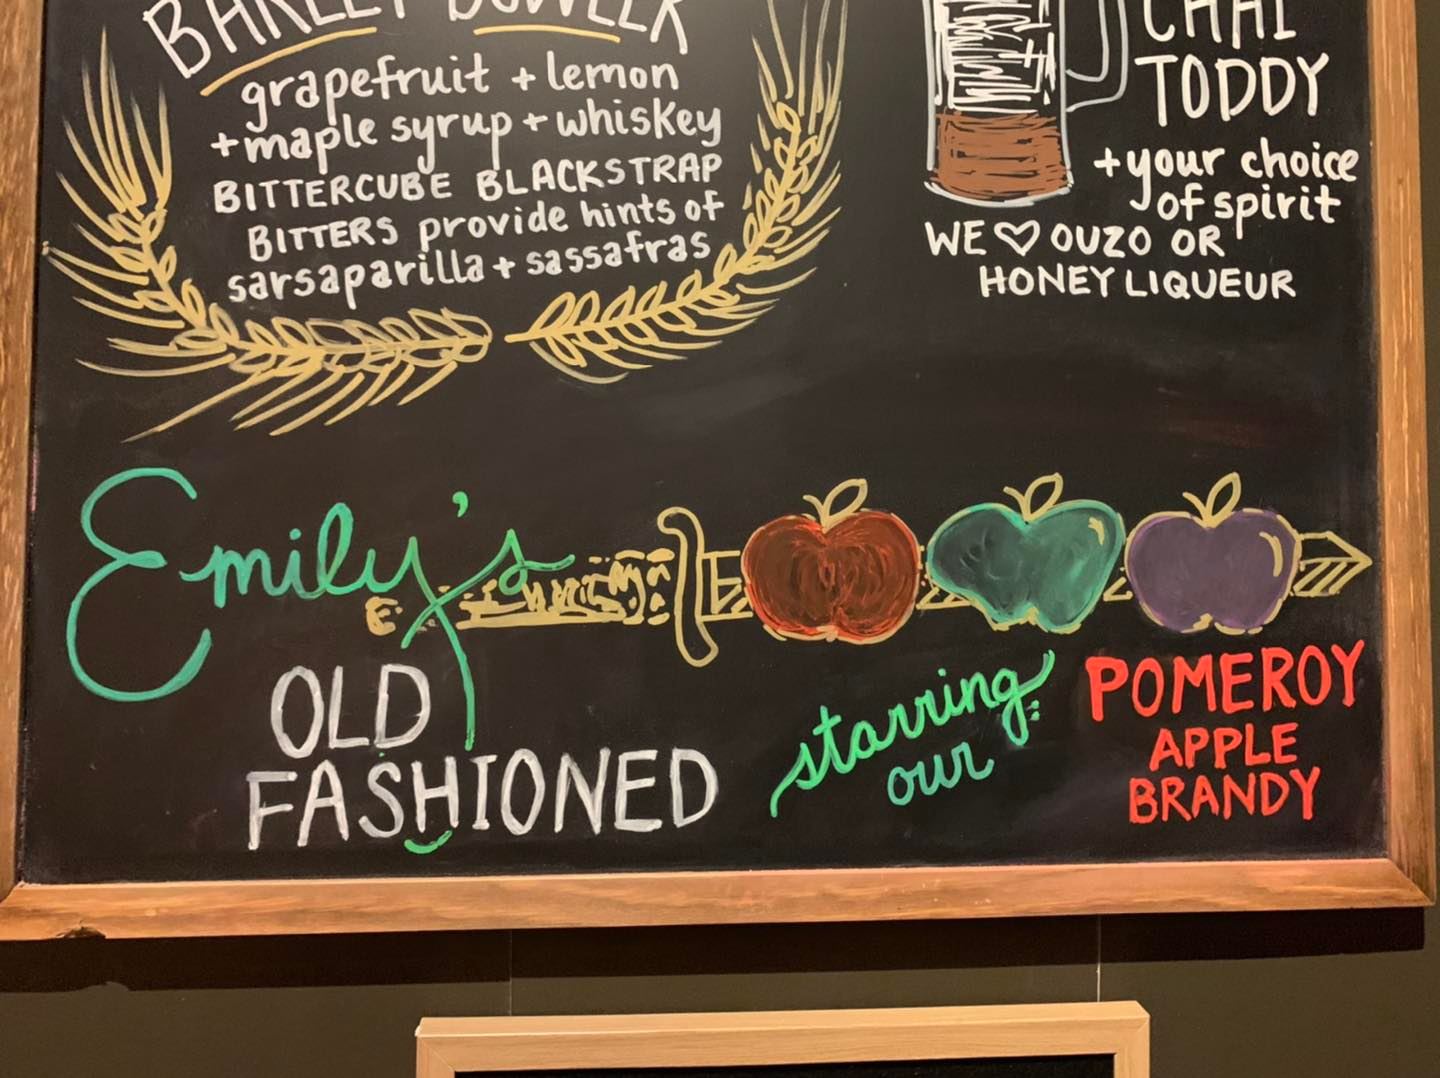 BARLEY BOWLER
grapefruit + lemon
+ maple syrup + whiskey
BITTERCUBE BLACKSTRAP
BITTERS provide hints of
sarsaparilla + sassafras
CHAI
TODDY
+ your choice
of spirit
WE ♡ OUZO OR
HONEY LIQUEUR
Emily's
OLD
FASHIONED
starring
our
POMEROY
APPLE
BRANDY